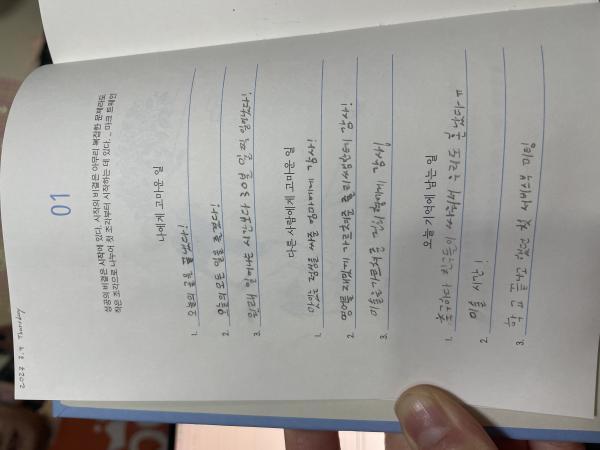 Thursday
01
성공의 비결은 시작에 있다. 시작의 비결은 아무리 복잡한 문제라도
작은 조각으로 나누어 첫 조각부터 시작하는 데 있다. _ 마크 트웨인
나에게 고마운 일
1. 오늘의 글을 끝냈다!
2. 오늘의 모든 일을 끝냈다!
3. 원래 일어나는 시간보다 30분 일찍 일어났다!
다른 사람에게 고마운 일
1. 맛있는 점심을 싸준 엄마에게 감사!
2. 영어를 재밌게 가르쳐준 감사!
3. 미술 가르쳐준 감사!
오늘 기억에 남는 일
1.
2. 미술 시간!
3. 학교 끝나고 갔던 첫 서비스부 미팅